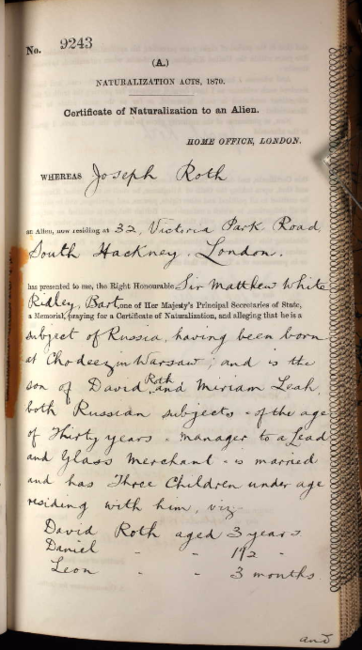 No. 9243
(A.)
NATURALIZATION ACTS, 1870.
Certificate of Naturalization to an Alien.
HOME OFFICE, LONDON.
WHEREAS Joseph Roth
an Alien, now residing at 32, Victoria Park Road,
South Hackney, London.
has presented to me, the Right Honourable Sir Matthew White
Ridley, Bart one of Her Majesty's Principal Secretaries of State,
a Memorial, praying for a Certificate of Naturalization, and alleging that he is a
subject of Russia, having been born
at Chodeezin Warsaw; and is the
son of David Roth and Miriam Leah,
both Russian subjects - of the age
of Thirty years - manager to a Lead
and Glass Merchant - is married
and has Three Children under age
residing with him, viz
David Roth aged 3 years
Daniel - - 1 9/12 -
Leon - - 3 months
and